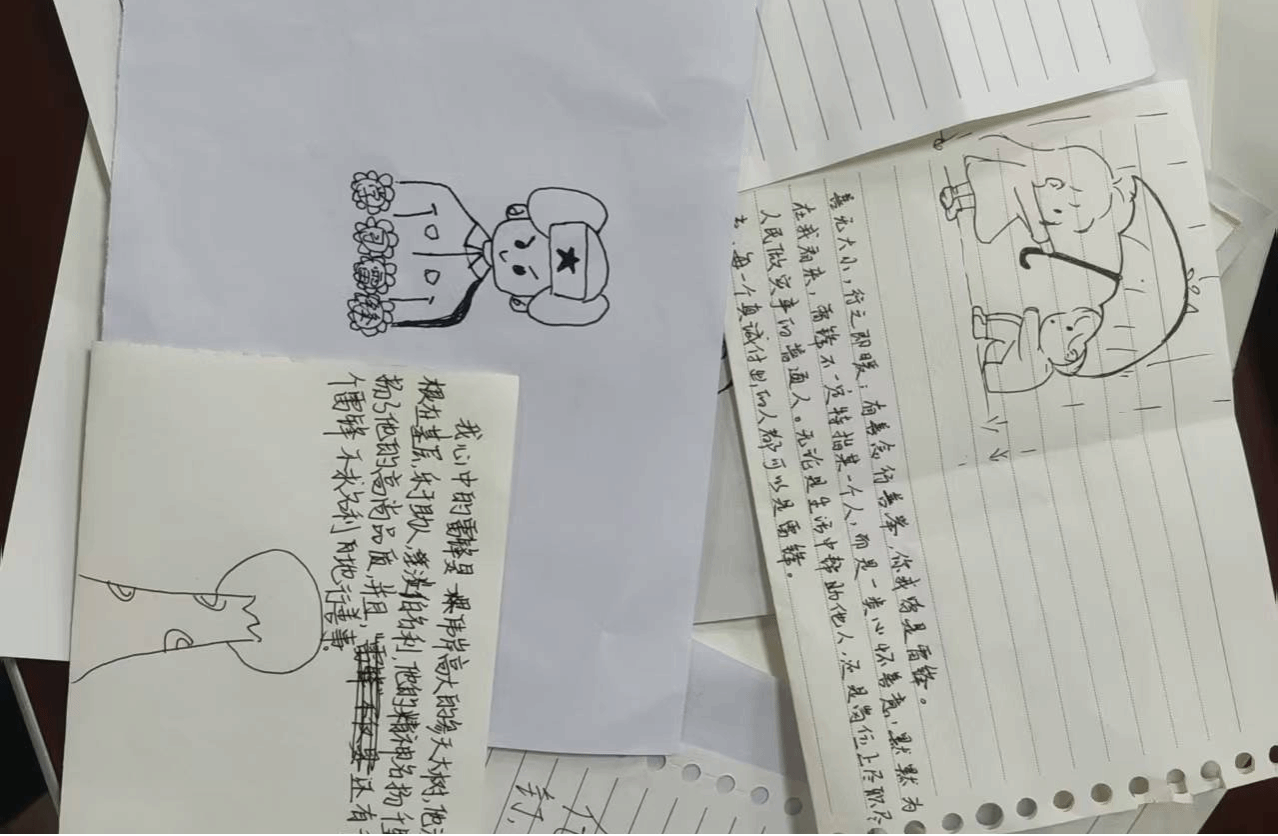 学习雷锋
善无大小，行之即暖；有善念行善举，你我皆是雷锋。
在我看来，雷锋不一定特指某一个人，而是一类心怀善意，默默为
人民做实事的普通人。无论是生活中帮助他人，还是岗位上尽职尽
每一个真诚付出的人都可以是雷锋。
我心中的雷锋是一棵伟岸高大的参天大树，他
根在基层，乐于助人，淡泊名利，他的精神名扬千里
扬了他的高尚品质，并且
还有
个雷锋 不求名利 行善事